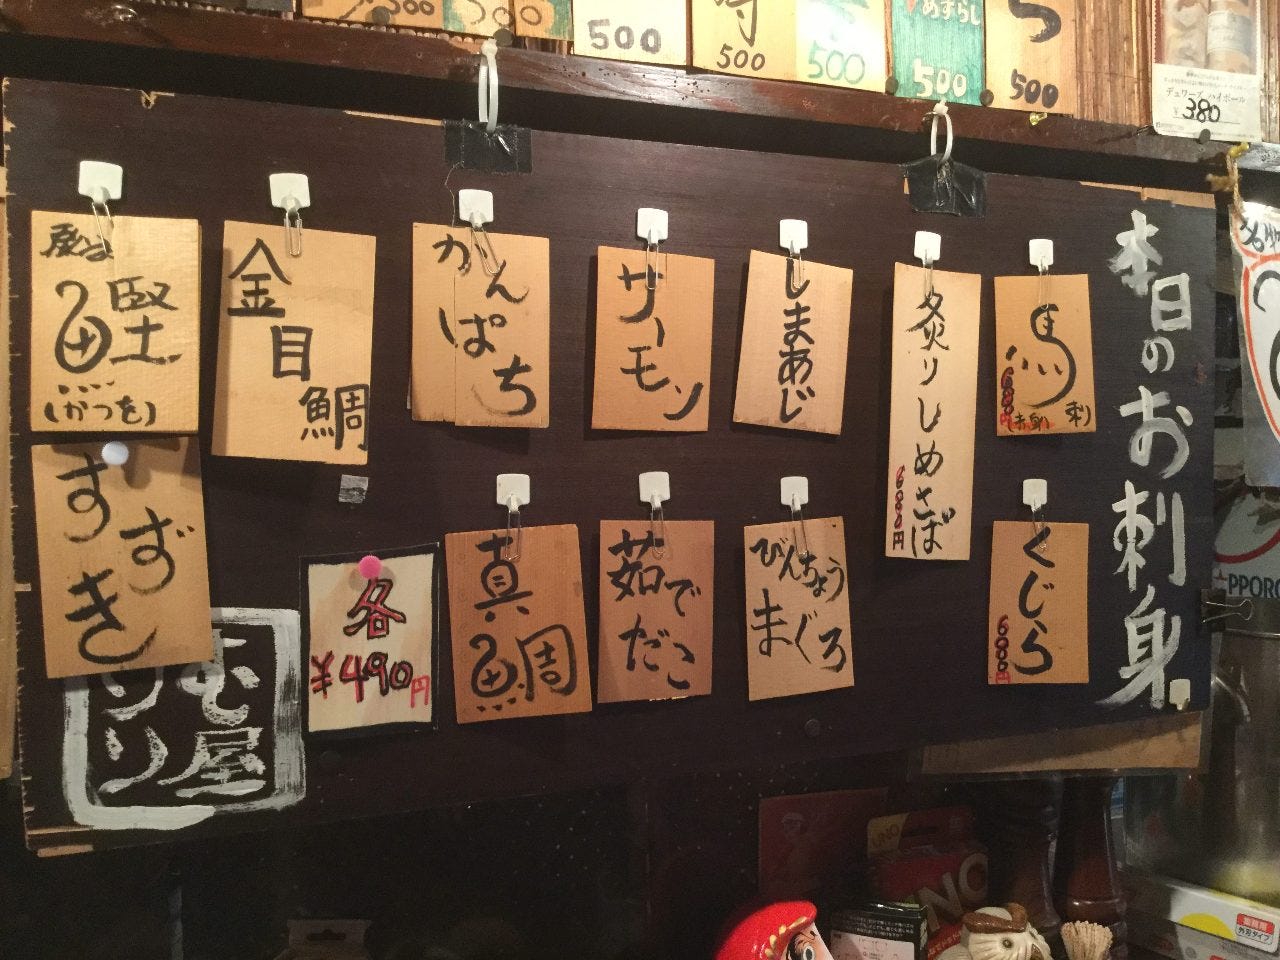 500
500
500
500
めずらし
500
500
デュワーズ ハイボール
¥380
本日のお刺身
馬刺
赤身
600円
炙りしめさば
600円
しまあじ
サーモン
かんぱち
金目鯛
鰹
(かつを)
くじら
600円
びんちょうまぐろ
茹でだこ
真鯛
各
¥490円
すずき
屋
UNO
PPORO